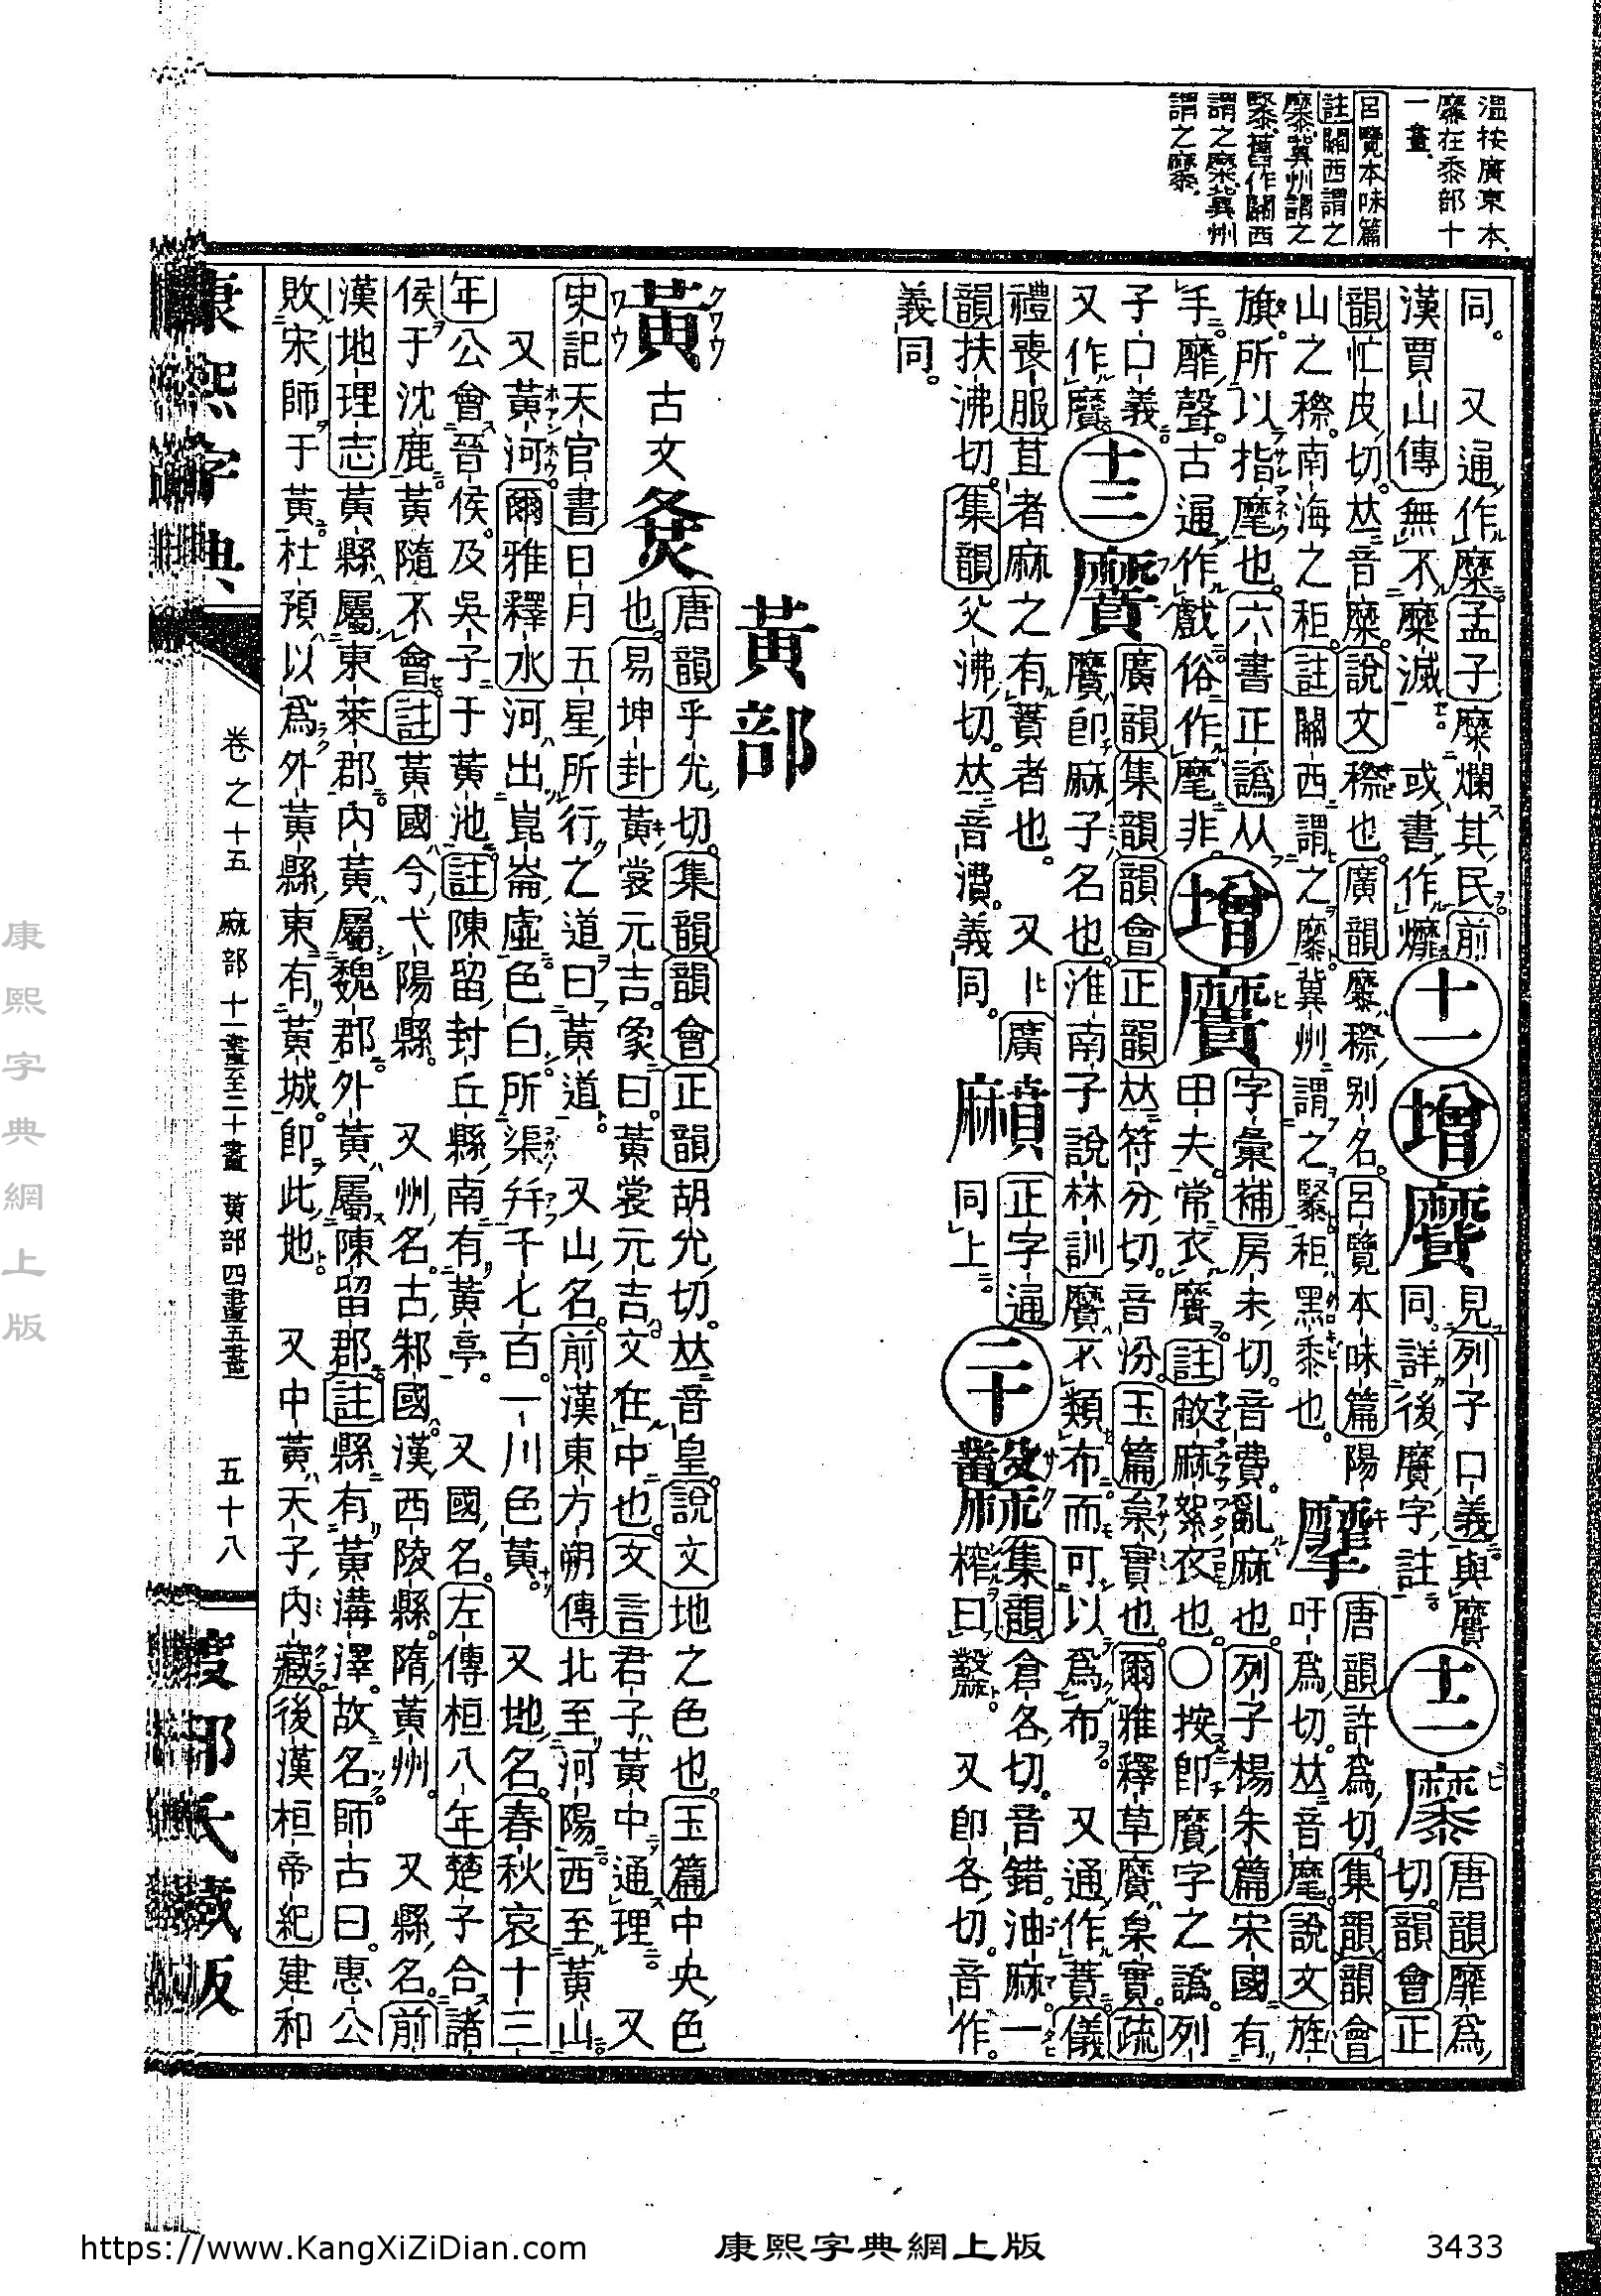 溫按廣東本
䵇在黍部十
一畫
呂覽本味篇
註關西謂之
䵇冀州謂之
䅔舊作關西
謂之穈冀州
謂之䵇
同。　又通作糜孟子糜爛其民前
漢賈山傳無不糜滅　或書作爢
十一
增
黂
見列子口義與黂
同詳後黂字註
十二
䵇
唐韻靡爲
切韻會正
韻忙皮切𠀤音糜說文穄也廣韻䵇穄別名呂覽本味篇陽
山之穄南海之秬註關西謂之䵇冀州謂之䅔秬黑黍也
𪎮
唐韻許爲切集韻韻會
吁爲切𠀤音麾說文旌
旗所以指麾也六書正譌从
手靡聲古通作戲俗作麾非
增
黂
字彙補房未切音費亂麻也列子楊朱篇宋國有
田夫常衣黂註敝麻絮衣也○按卽黂字之譌列
子口義
又作黂
十三
黂
廣韻集韻韻會正韻𠀤符分切音汾玉篇枲實也爾雅釋草黂枲實疏
黂卽麻子名也淮南子說林訓黂不類布而可以爲布　又通作蕡儀
禮喪服苴者麻之有蕡者也　又廣
韻扶沸切集韻父沸切𠀤音濆義同
𪎰
正字通
同上
二十
集韻倉各切音錯油麻一
榨曰　又卽各切音作
義同
黃部
黃
古文
唐韻乎光切集韻韻會正韻胡光切𠀤音皇說文地之色也玉篇中央色
也易坤卦黃裳元吉象曰黃裳元吉文在中也文言君子黃中通理　又
史記天官書日月五星所行之道曰黃道　又山名前漢東方朔傳北至河陽西至黃山
又黃河爾雅釋水河出崑崙虛色白所渠幷千七百一川色黃　又地名春秋哀十三
年公會晉侯及吳子于黃池註陳留封丘縣南有黃亭　又國名左傳桓八年楚子合諸
侯于沈鹿黃隨不會註黃國今弋陽縣　又州名古邾國漢西陵縣隋黃州　又縣名前
漢地理志黃縣屬東萊郡內黃屬魏郡外黃屬陳留郡註縣有黃溝澤故名師古曰惠公
敗宋師于黃杜預以爲外黃縣東有黃城卽此地　又中黃天子內藏後漢桓帝紀建和
康熙字典
卷之十五　麻部十一畫至二十畫　黃部四畫五畫
五十八
渡部氏藏版
康熙字典網上版
https://www.KangXiZiDian.com
康熙字典網上版
3433